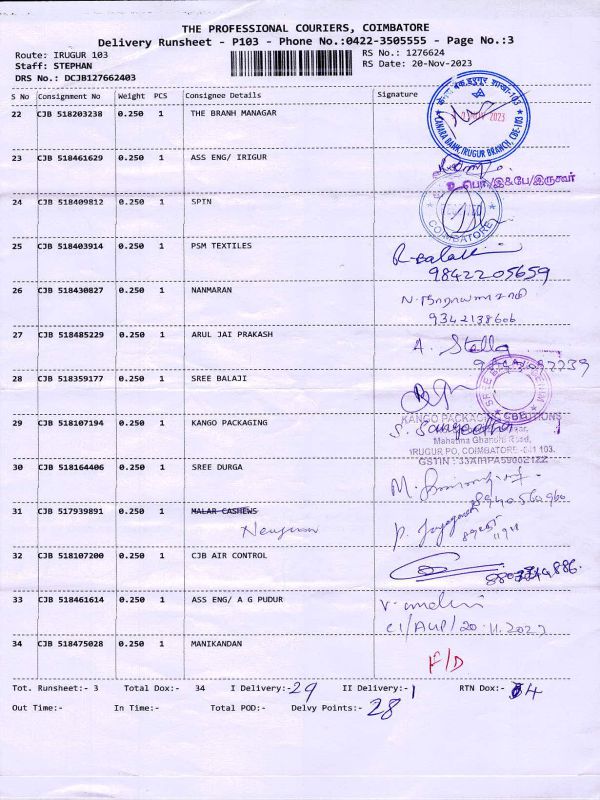 THE PROFESSIONAL COURIERS, COIMBATORE
Delivery Runsheet - P103 - Phone No.:0422-3505555 - Page No.:3
Route: IRUGUR 103
RS No.: 1276624
Staff: STEPHAN
RS Date: 20-Nov-2023
DRS No.: DCJB127662403
S No Consignment No Weight PCS Consignee Details Signature
22 CJB 518203238 0.250 1 THE BRANH MANAGAR
CANARA BANK, IRUGUR BRANCH, CBE-103
23 CJB 518461629 0.250 1 ASS ENG/ IRIGUR
24 CJB 518409812 0.250 1 SPIN
COIMBATORE
25 CJB 518403914 0.250 1 PSM TEXTILES
9842205659
26 CJB 518430827 0.250 1 NANMARAN
9342138606
27 CJB 518485229 0.250 1 ARUL JAI PRAKASH A. Stella
28 CJB 518359177 0.250 1 SREE BALAJI
29 CJB 518107194 0.250 1 KANGO PACKAGING
KANGO PACKAGING
IRUGUR PO, COIMBATORE -641 103.
30 CJB 518164406 0.250 1 SREE DURGA
8940560960
31 CJB 517939891 0.250 1 MALAR CASHEWS
32 CJB 518107200 0.250 1 CJB AIR CONTROL
33 CJB 518461614 0.250 1 ASS ENG/ A G PUDUR
34 CJB 518475028 0.250 1 MANIKANDAN F/D
Tot. Runsheet:- 3 Total Dox:- 34 I Delivery:- 29 II Delivery:- 1 RTN Dox:- 4
Out Time:- In Time:- Total POD:- Delvy Points:- 28